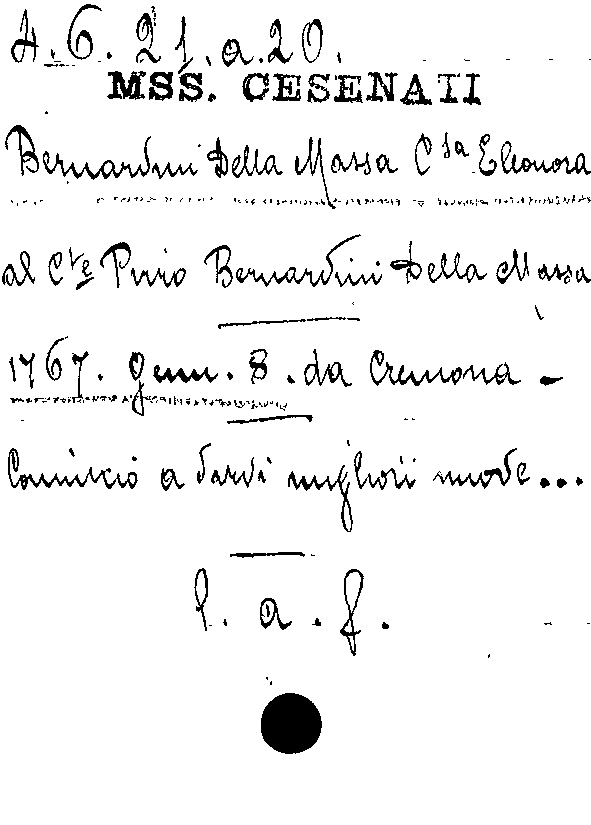 4.6.21.a.20.
MSS. CESENATI
Bernardini Della Massa C.sa Eleonora
al C.te Pirro Bernardini Della Massa
1767. Genn. 8. da Cremona -
Comincio a darvi migliori nuove...
l. a. f.